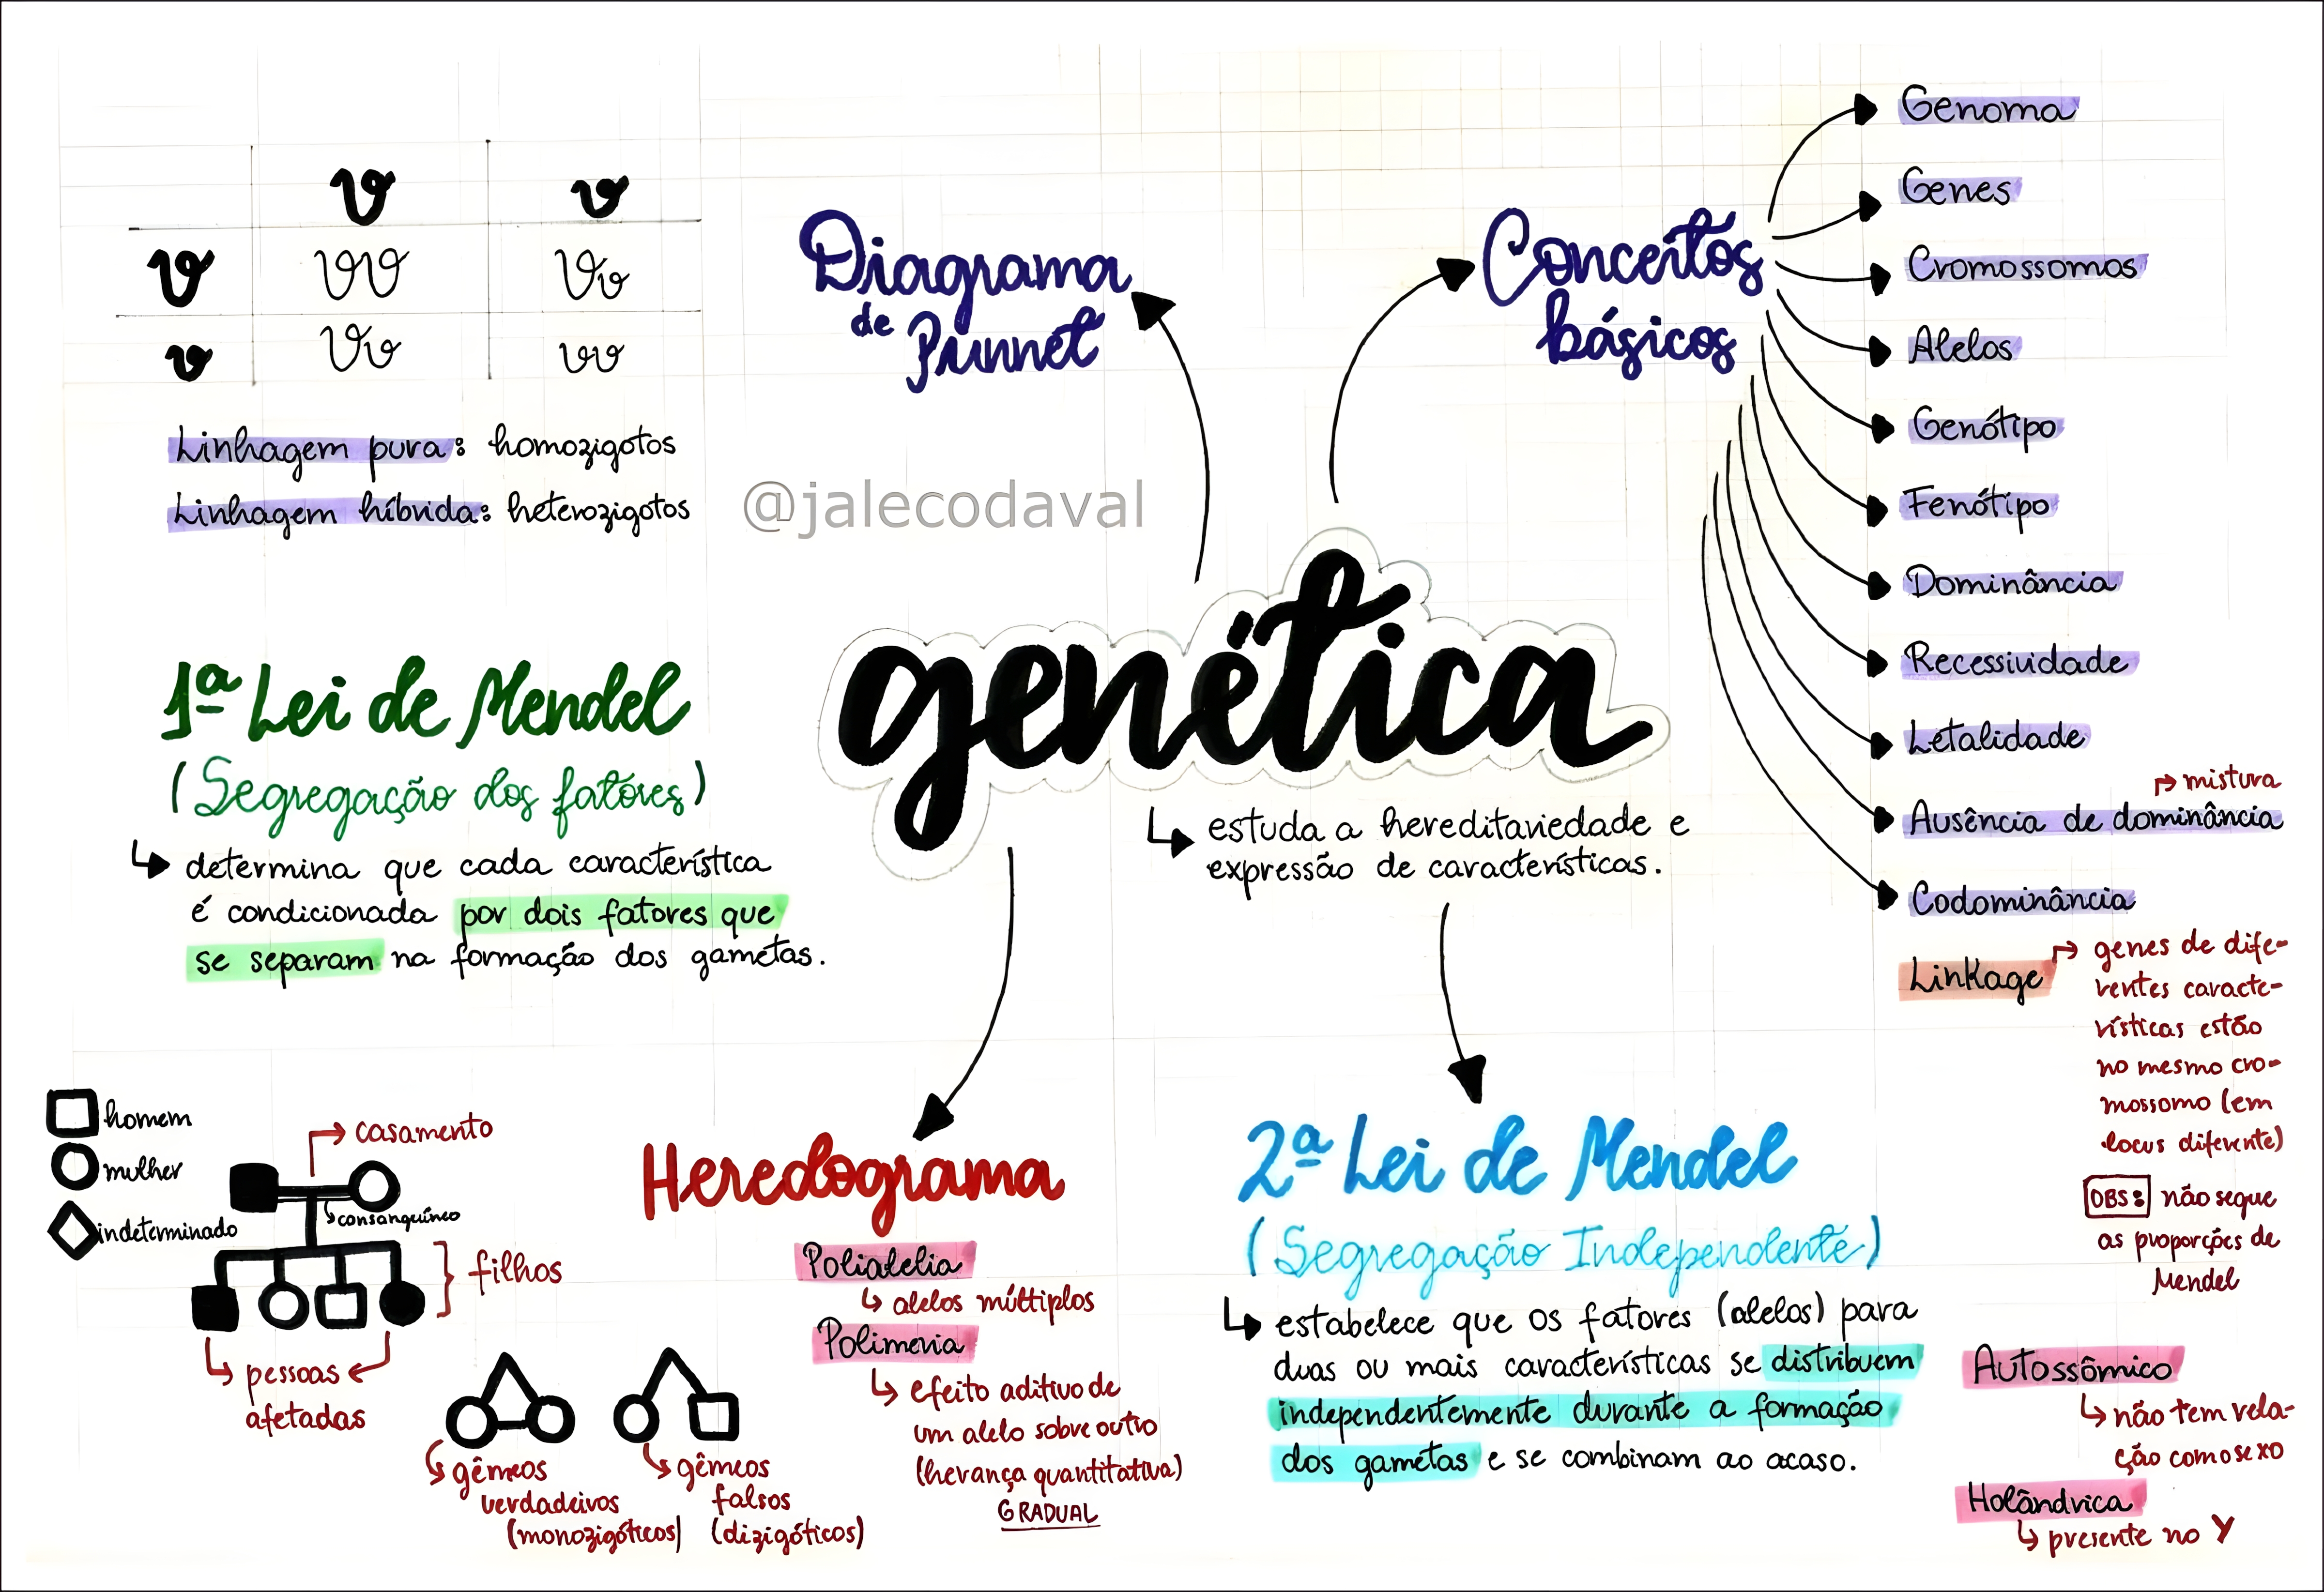 V v
V VV Vv
v Vv vv
Linhagem pura: homozigotos
Linhagem híbrida: heterozigotos
Diagrama
de Punnet
@jalecodaval
Conceitos
básicos
Genoma
Genes
Cromossomos
Alelos
Genótipo
Fenótipo
Dominância
Recessividade
Letalidade
mistura
Ausência de dominância
Codominância
Linkage
genes de dife-
rentes caracte-
rísticas estão
no mesmo cro-
mossomo (em
locus diferente)
OBS: não segue
as proporções de
Mendel
Autossômico
não tem rela-
ção com o sexo
Holândrica
presente no Y
genética
estuda a hereditariedade e
expressão de características.
1ª Lei de Mendel
(Segregação dos fatores)
determina que cada característica
é condicionada por dois fatores que
se separam na formação dos gametas.
homem
mulher
indeterminado
casamento
consanguíneo
filhos
pessoas
afetadas
gêmeos
verdadeiros
(monozigóticos)
gêmeos
falsos
(dizigóticos)
Heredograma
Polialelia
alelos múltiplos
Polimeria
efeito aditivo de
um alelo sobre outro
(herança quantitativa)
GRADUAL
2ª Lei de Mendel
(Segregação Independente)
estabelece que os fatores (alelos) para
duas ou mais características se distribuem
independentemente durante a formação
dos gametas e se combinam ao acaso.